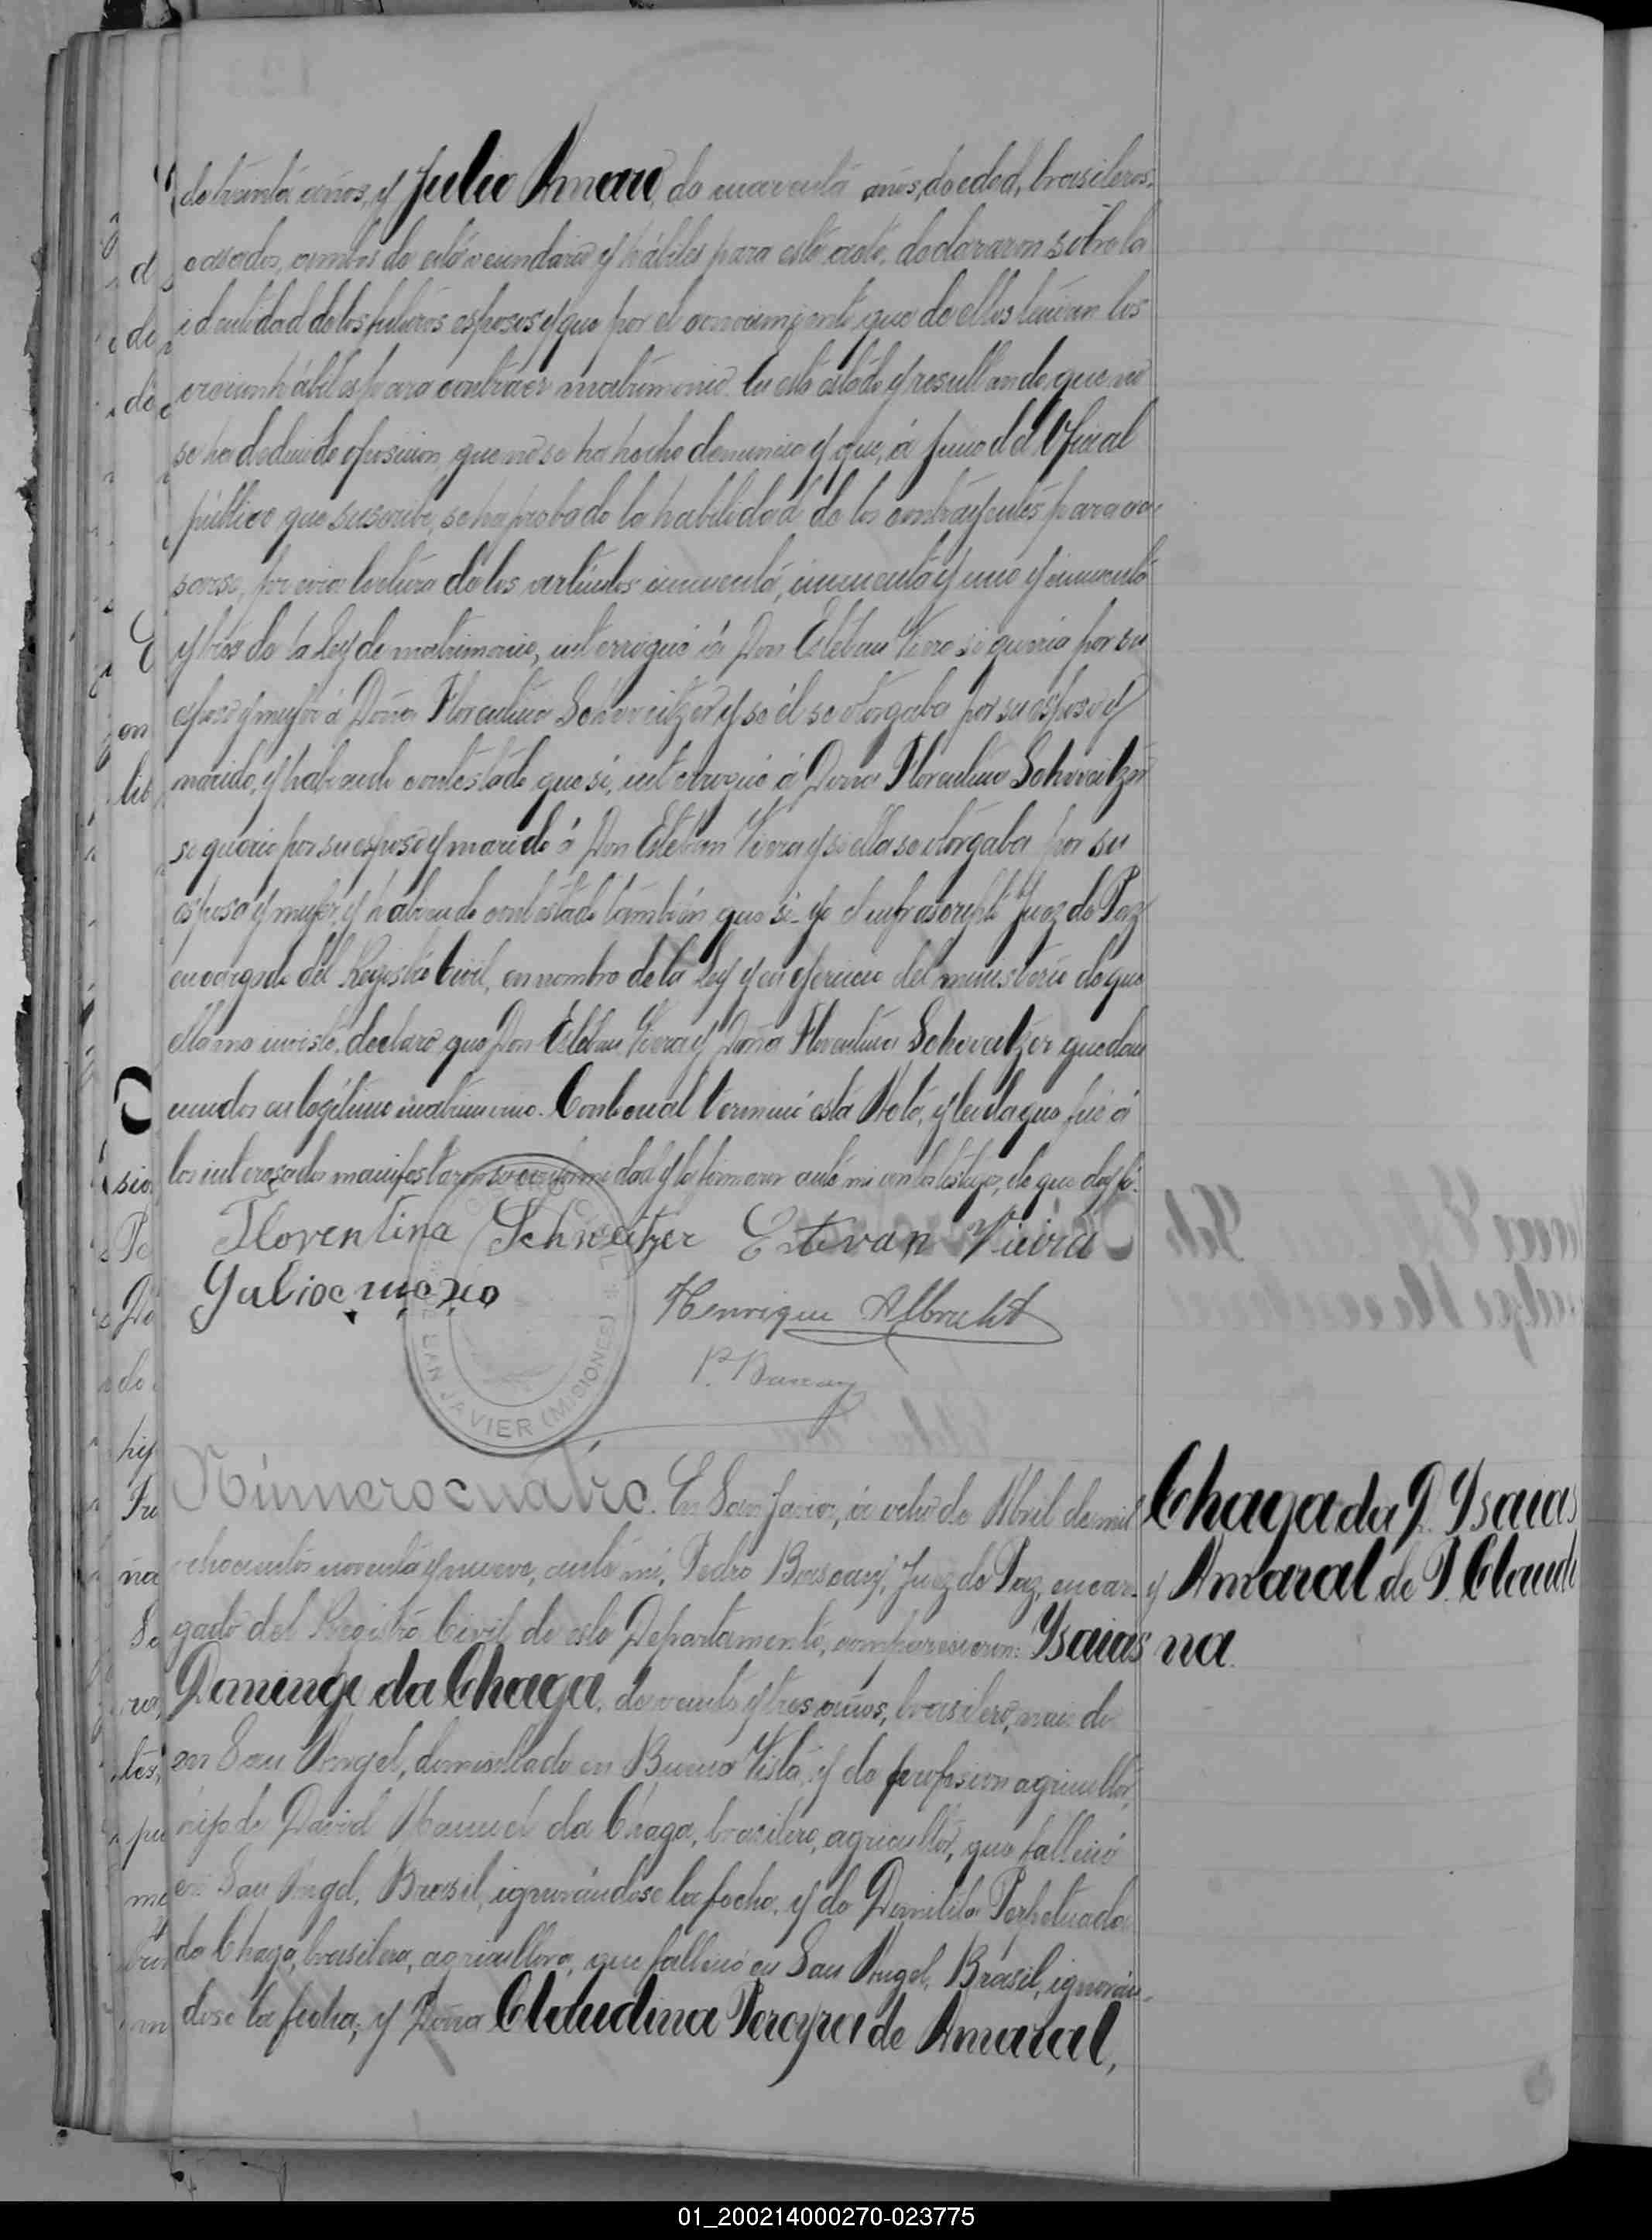 de treinta años, y Julio Amaro, de cuarenta años, de edad, brasileros,
casados, ambos de este vecindario y hábiles para este acto, declararon sobre la
identidad de los futuros esposos y que por el conocimiento que de ellos tenían los
creían hábiles para contraer matrimonio. En este estado y resultando que no
se ha deducido oposicion, que no se ha hecho denuncia y que, á juicio del Oficial
público que suscribe, se ha probado la habilidad de los contrayentes para ca-
sarse, previa lectura de los artículos cincuenta, cincuenta y uno y cincuenta
y tres de la Ley de matrimonio, interrogué á Don Esteban Viera si queria por su
esposa y mujer á Doña Florentina Schweitzer y si él se otorgaba por su esposo y
marido, y habiendo contestado que sí, interrogué á Doña Florentina Schweitzer
si queria por su esposo y marido á Don Esteban Viera y si ella se otorgaba por su
esposa y mujer, y habiendo contestado tambien que sí - yo el infrascripto Juez de Paz
encargado del Registro Civil, en nombre de la Ley y en ejercicio del ministerio de que
ella me inviste, declaro que Don Esteban Viera y Doña Florentina Schweitzer quedan
unidos en legítimo matrimonio. Con lo cual terminé esta Acta, y leída que fué á
los interesados manifestaron su conformidad y la firmaron ante mi con los testigos, de que doy fé.
Florentina Schweitzer Estevan Vieira
Julio amaro
Henrique Albrecht
P.
SAN JAVIER (MISIONES)
Número cuatro. En San Javier, á ocho de Abril de mil
ochocientos noventa y nueve, ante mí, Pedro Juez de Paz, encar-
gado del Registro Civil de este Departamento, comparecieron: Ysaias
Domingo da Chaga, de veinte y tres años, brasilero, nacido
en San Angel, domiciliado en Buena Vista, y de profesion agricultor,
hijo de David Manuel da Chaga, brasilero, agricultor, que falleció
en San Angel, Brasil, ignorándose la fecha, y de Domitila Perpetua da
da Chaga, brasilera, agricultora, que falleció en San Angel, Brasil, ignorán-
dose la fecha; y Doña Claudina Pereyra de Amaral,
Chaga da D. Ysaias
y Amaral de P. Claudi
na.
01_200214000270-023775